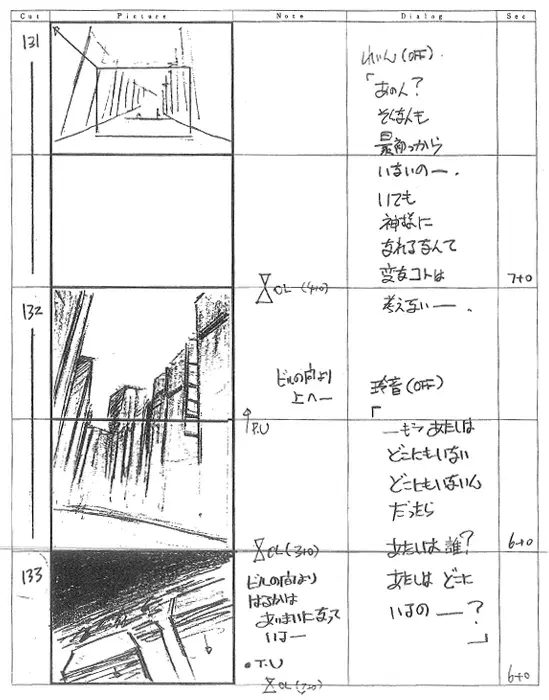 Cut Picture Note Dialog Sec
131
れいん(OFF)
「あのん?
そんなんも
最初っから
いないの—.
いても
神様に
なれるなんて
変なコトは
7+0
OL (4+0)
132
考えない—.
ビルの向より
上へ—
玲音(OFF)
「
P.U
—もう あたしは
どこにもいない
どこにもいないん
だったら
OL (3+0)
6+0
133
あたしは 誰?
ビルの向より
はるかは
あいまいになって
いは—
あたしは どこに
いるの —?
」
• T.U
6+0